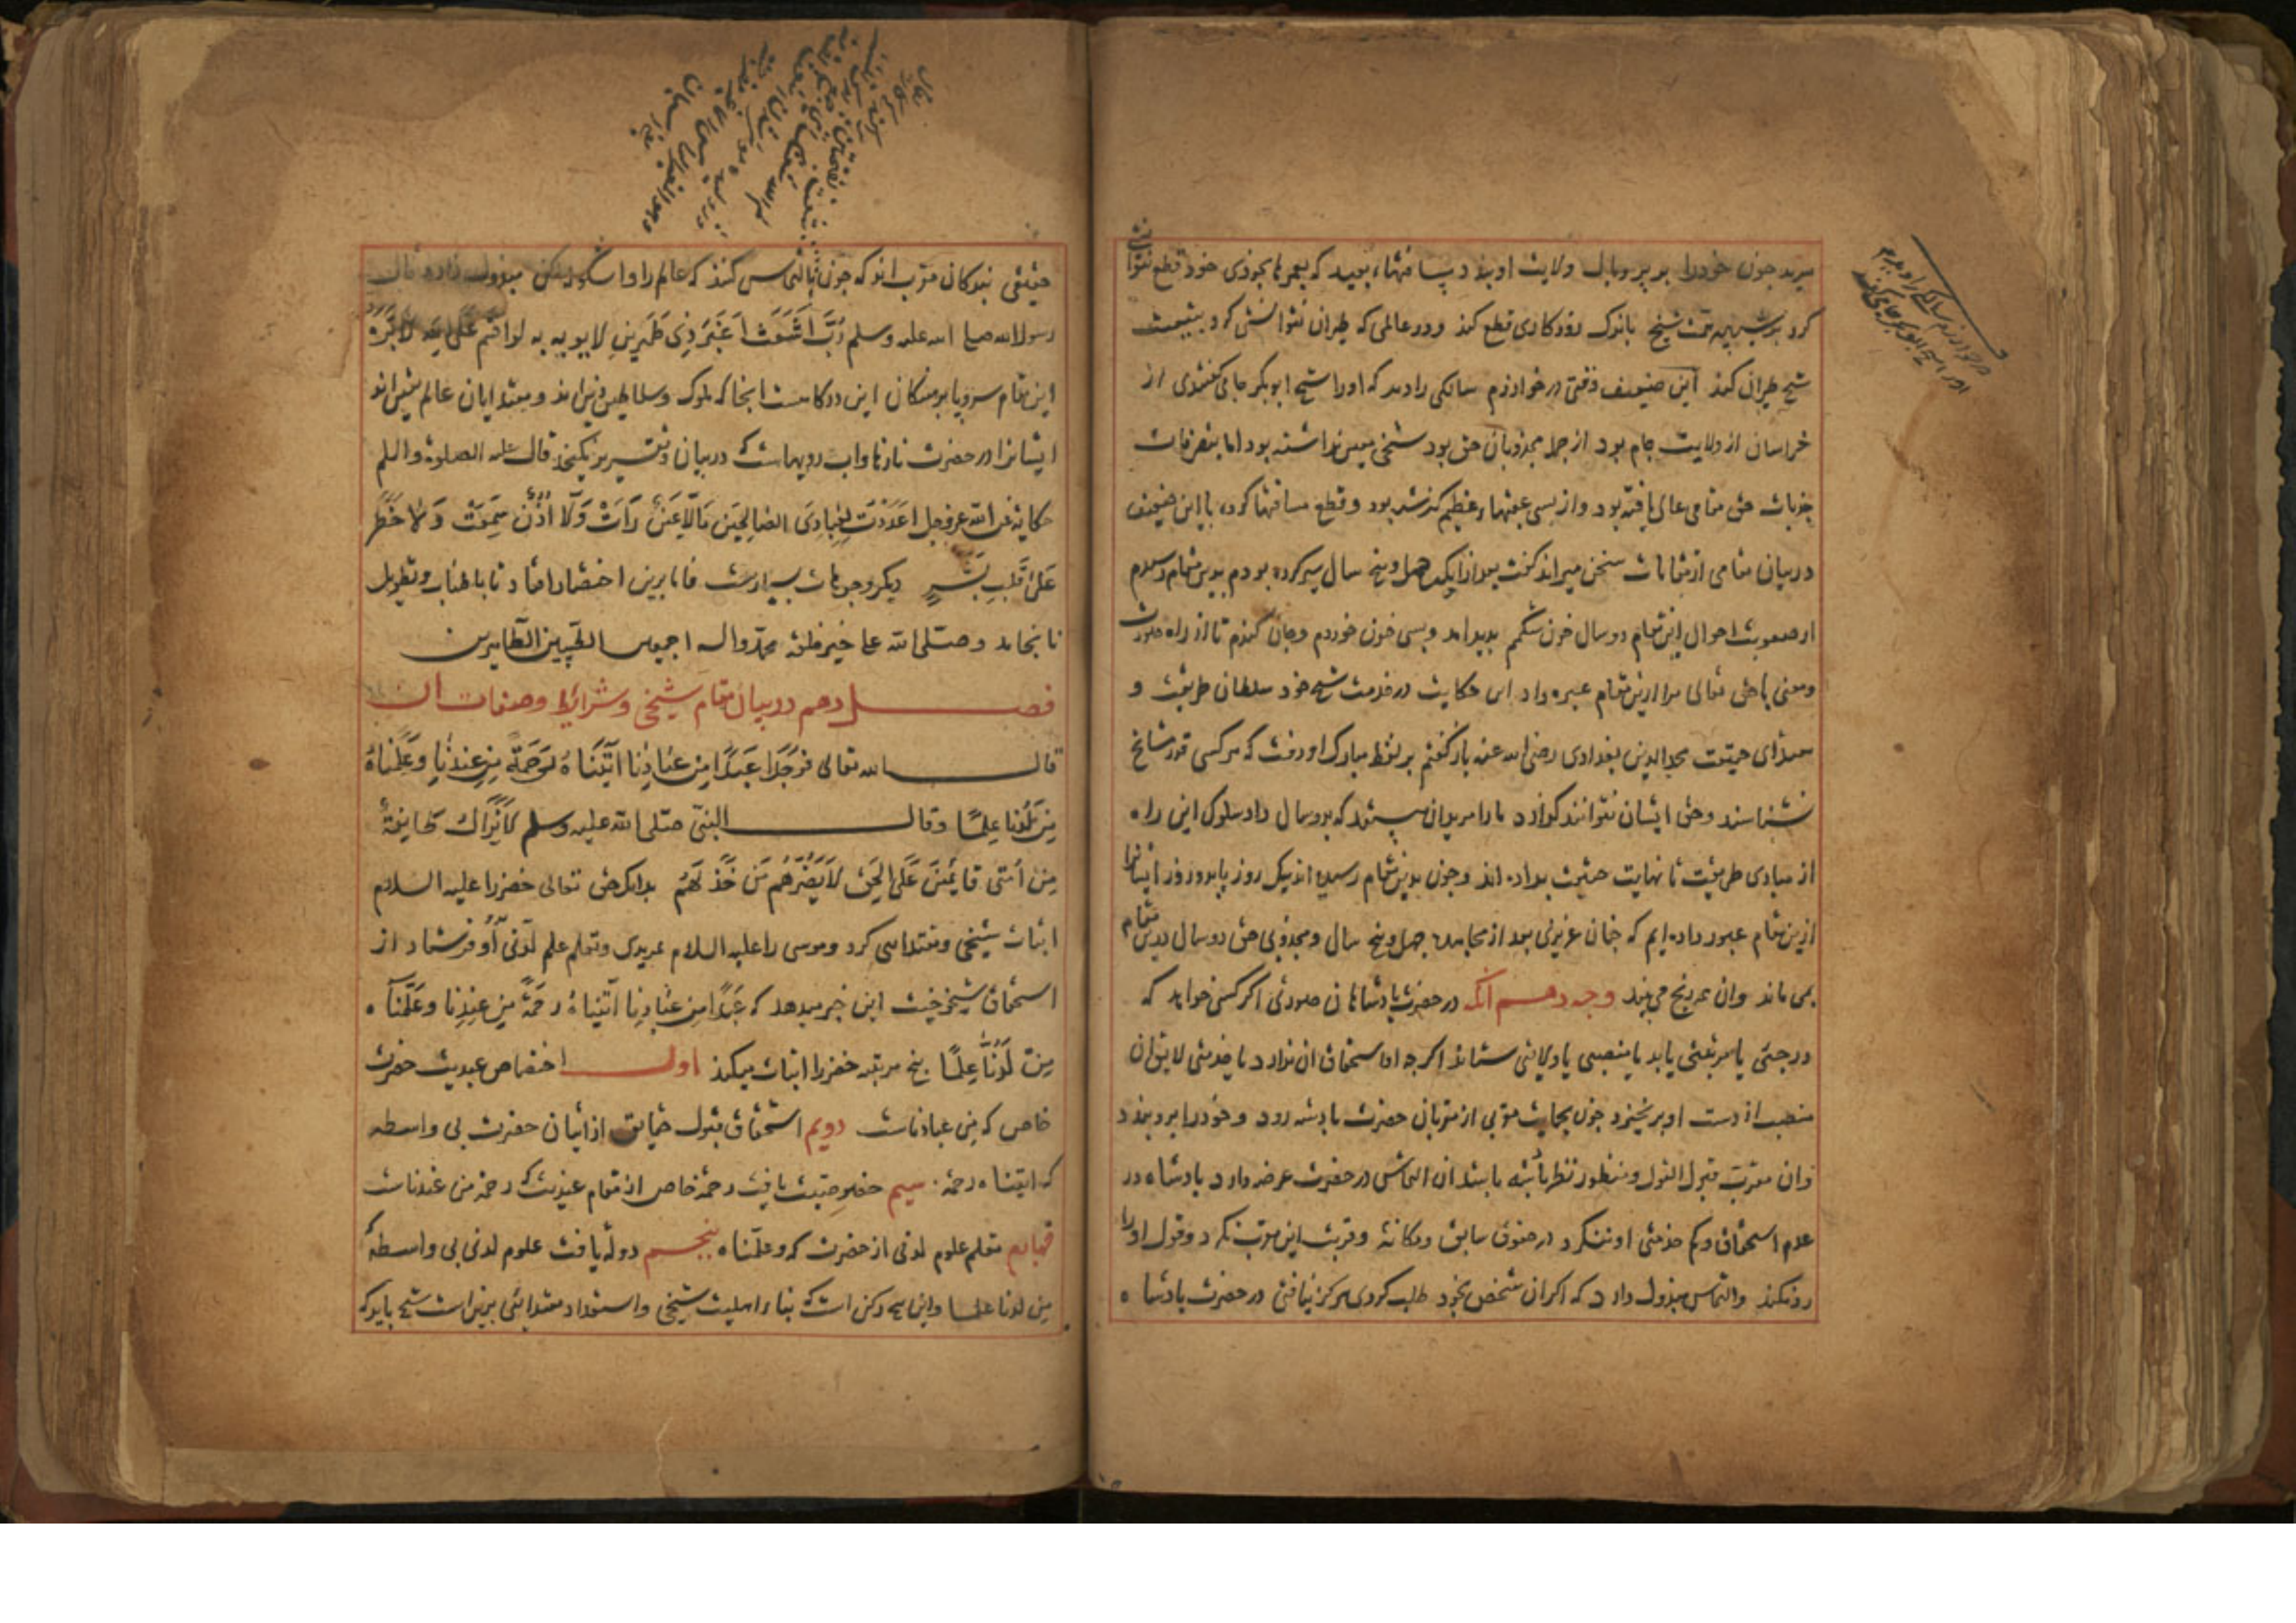 مرید چون خودرا بر پر وبال ولایت او بندد مسافتهاء بعید که بعمرها بخودی خود قطع نتوانستی
کرد بر شهپر همت شیخ باندک روزکاری قطع کند ودر عالمی که طیران نتوانستی کرد بتبعیت
شیخ طیران کند این ضعیف وقتی در خوارزم سالکی را دید که اورا شیخ ابوبکر جامی کفتندی از
خراسان از ولایت جام بود از جمله مجذوبان حق بود شیخی معین نداشته بود اما بتصرفات
جذبات حق مقامی عالی یافته بود واز بسی عقبهاء عظیم کذشته بود وقطع مسافتها کرده با این ضعیف
در بیان مقامی از مقامات سخن میراند کفت بعد از انکه چهل وپنج سال سیر کرده بودم بدین مقام رسیدم
از صعوبت احوال این مقام دو سال خون شکمم بدید امد و بسی خون خوردم وجان کندم تا از راه صورت
ومعنی با حق تعالی مرا ازین مقام عبره داد این حکایت در خدمت شیخ خود سلطان طریقت و
مقتدای حقیقت مجد الدین بغدادی رضی الله عنه باز کفتم بر لفظ مبارک او رفت که هرکسی قدر مشایخ
نشناسند وحق ایشان نتوانند کزارد مارا مریدان هستند که بدو سال داد سلوک این راه
از مبادی طریقت تا نهایت حقیقت بداده اند وچون بدین مقام رسیده اند بیک روز یا بدو روز ایشانرا
ازین مقام عبور داده ایم که چنان عزیزی بعد از مجاهده چهل وپنج سال ومجذوبی حق دو سال درین مقام
بمی ماند وان همه رنج می بیند وجه دهم انکه در حضرت بادشاهان صورتی اکر کسی خواهد که
درجتی یا مرتبتی یابد یا منصبی یا ولایتی ستاند اکرچه او استحقاق ان ندارد یا خدمتی لایق ان
منصب از دست او بر نخیزد چون بحمایت مقربی از مقربان حضرت بادشه رود وخودرا برو بندد
وان مقرب مقبول القول ومنظور نظر بادشه باشد ان التماس در حضرت عرضه دارد بادشاه در
عدم استحقاق وکم خدمتی او ننکرد در حقوق سابق ومکانت وقربت این مقرب نکرد وقول اورا
رد نکند والتماس مبذول دارد که اکر ان شخص بخود طلب کردی هرکز نیافتی در حضرت بادشاه
در خوارزم سالکی را دیدم
حقیقی بندکان مقرب اند که چون التماس کنند که عالم را
رسول الله صلی الله علیه وسلم رُبَّ اَشْعَثَ اَغْبَرَ ذِی طِمْرَیْنِ لا یوبه به لو اقسم عَلَی الله لَاَبَرَّهُ
این مقام سر وپا برهنکان این درکاهست انجا که ملوک وسلاطین دین اند ومقتدایان عالم یقین اند
ایشانرا در حضرت نازها واب رویهاست که در بیان وتقریر نکنجد قال علیه الصلوة والسلم
حکایة عن الله عز وجل اَعْدَدْتُ لِعِبَادِیَ الصَّالِحِینَ مَا لَا عَیْنٌ رَأَتْ وَلَا اُذُنٌ سَمِعَتْ وَلَا خَطَرَ
عَلَی قَلْبِ بَشَرٍ دیکر وجوهات بسیارست فاما برین اختصار افتاد تا باطناب وتطویل
نانجامد وصلی الله علی خیر خلقه محمد واله اجمعین الطیبین الطاهرین
فصل دهم در بیان مقام شیخی وشرایط وصفات ان
قال الله تعالی فَوَجَدَا عَبْدًا مِنْ عِبَادِنَا اٰتَیْنَاهُ رَحْمَةً مِنْ عِنْدِنَا وَعَلَّمْنَاهُ
مِنْ لَدُنَّا عِلْمًا وقال النبی صلی الله علیه وسلم لا تزال طایفةٌ
مِنْ اُمَّتِی قایمینَ عَلَی الحَقِّ لَا یَضُرُّهُم مَنْ خَذَلَهُم بدانکه حق تعالی خضر را علیه السلام
اثبات شیخی ومقتدایی کرد وموسی را علیه السلام بمریدی وتعلم علم لدنی او فرستاد از
استحقاق شیخوخیت این خبر میدهد که عَبْدًا مِن عِبَادِنَا اٰتَیْنَاهُ رَحْمَةً مِنْ عِنْدِنَا وعَلَّمْنَاه
مِنْ لَدُنَّا عِلْمًا پنج مرتبه خضر را اثبات میکند اول اختصاص عبدیت حضرت
خاص که من عبادناست دویم استحقاق قبول حقایق از اتیان حضرت بی واسطه
که اتیناه رحمة سیم خصوصیت یافت رحمة خاص از مقام عندیت که رحمة من عندناست
چهارم تعلم علوم لدنی از حضرت که وعلمناه پنجم دولة یافت علوم لدنی بی واسطه که
من لدنا علما واین پنج رکن است که بناء اهلیت شیخی واستعداد مقتدایی برین است شیخ باید که